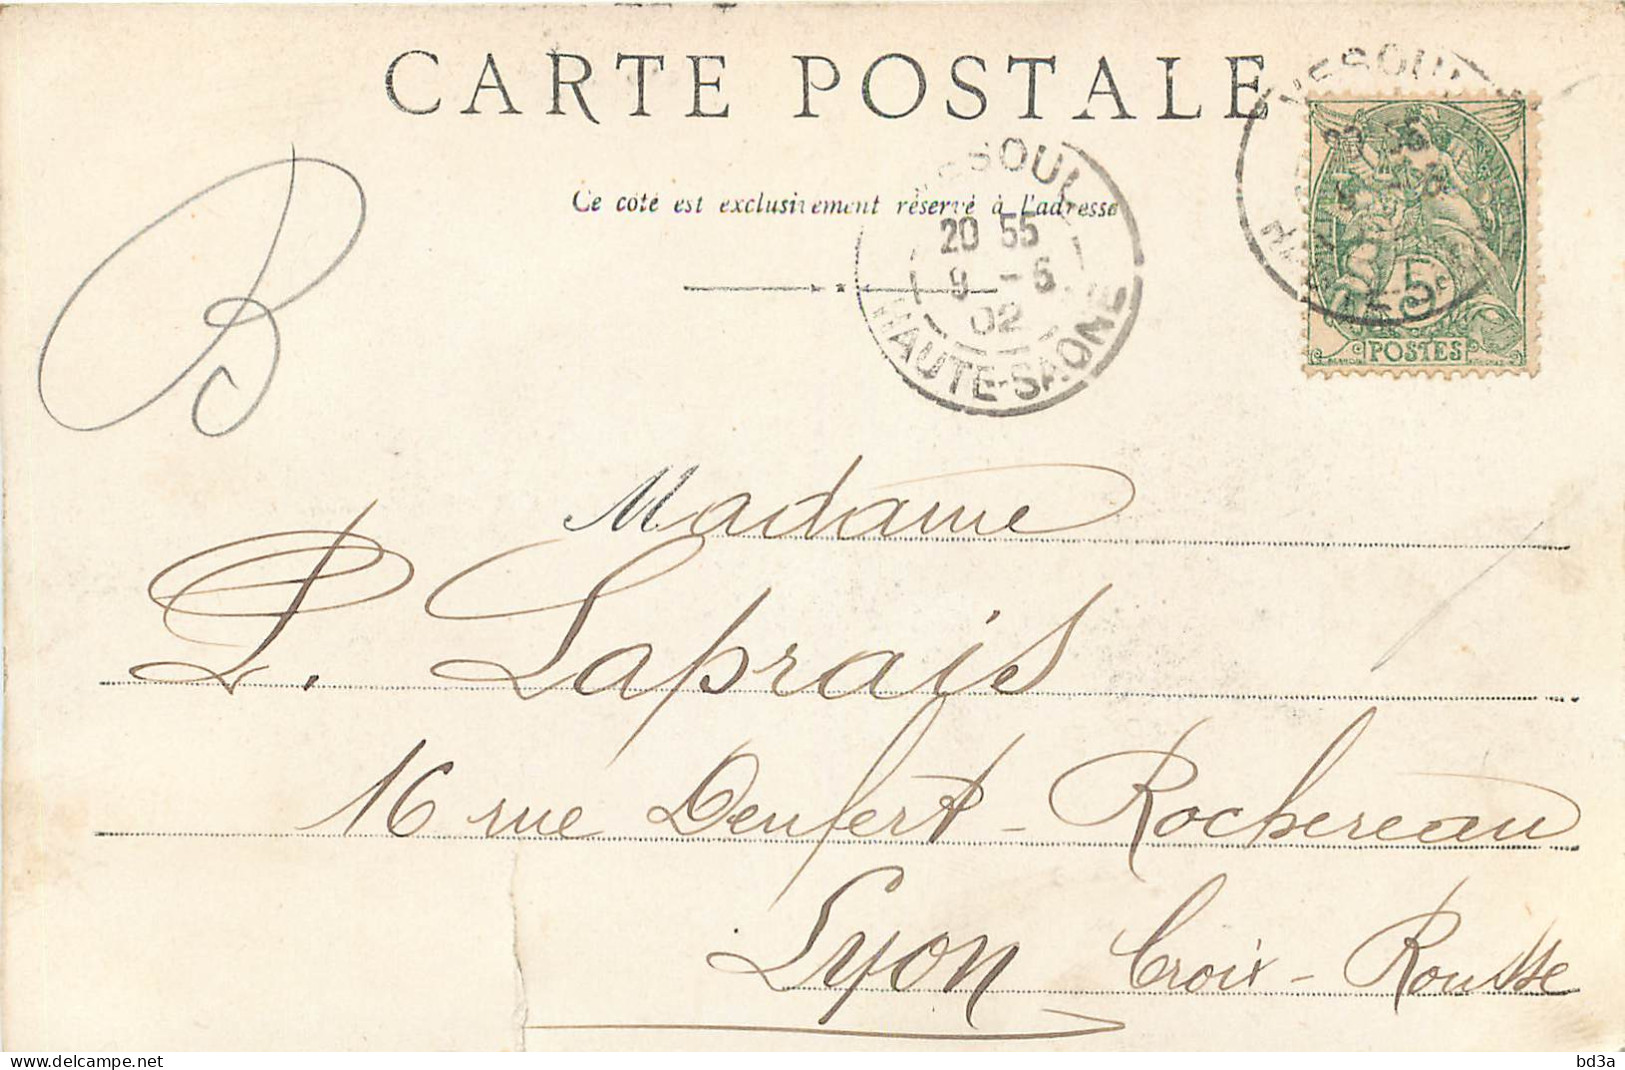 CARTE POSTALE
Ce côté est exclusivement réservé à l'adresse
VESOUL
20 55
9 - 6
02
HAUTE-SAONE
VESOUL
5
POSTES
B
Madame
P. Laprais
16 rue Denfert-Rochereau
Lyon Croix-Rousse
bd3a